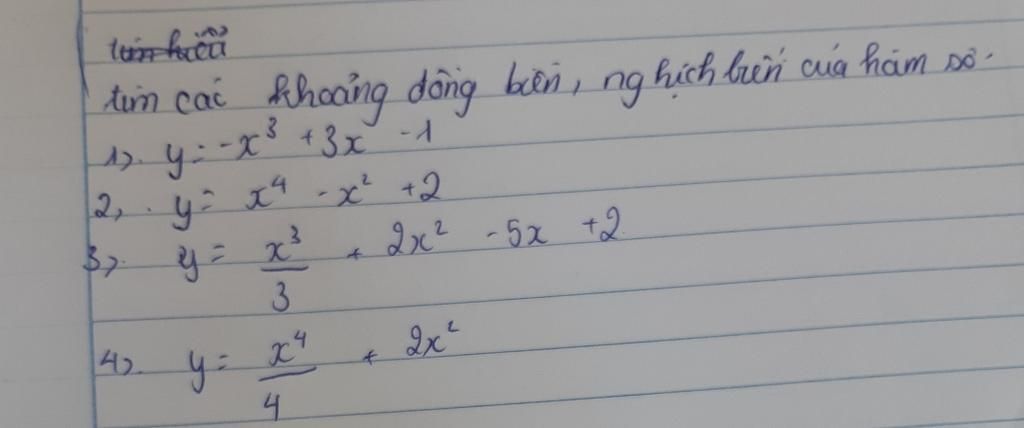 tìm các khoảng đồng biến, nghịch biến của hàm số.
1>. y = -x³ + 3x - 1
2, . y = x⁴ - x² + 2
3>. y = x³/3 + 2x² - 5x + 2
4>. y = x⁴/4 + 2x²